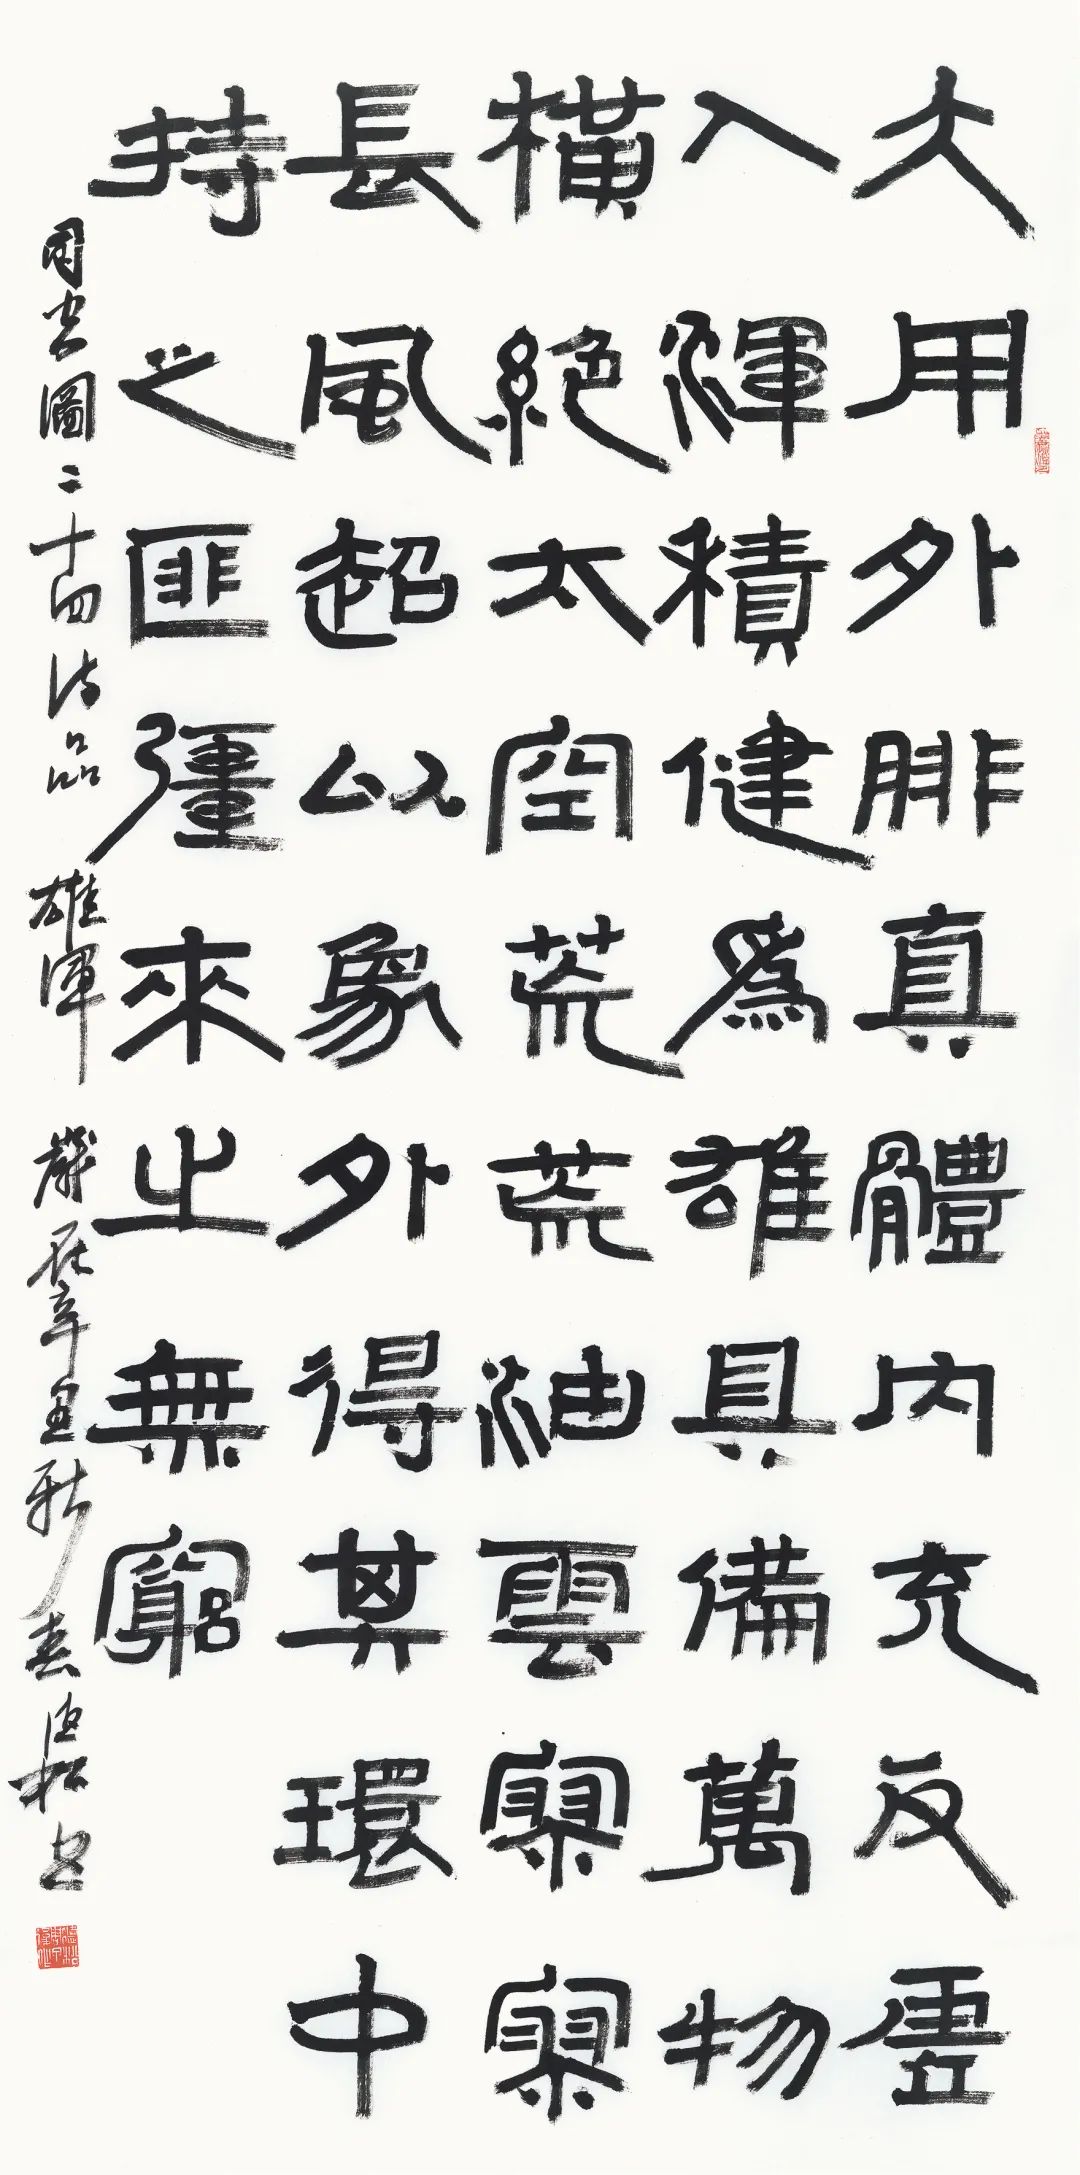 大用外腓真體内充反虛
入渾積健爲雄具備萬物
橫絕太空荒荒油雲寥寥
長風超以象外得其環中
持之匪彊來之無窮
司空圖二十四诗品 雄渾 歲在辛丑新春 松書